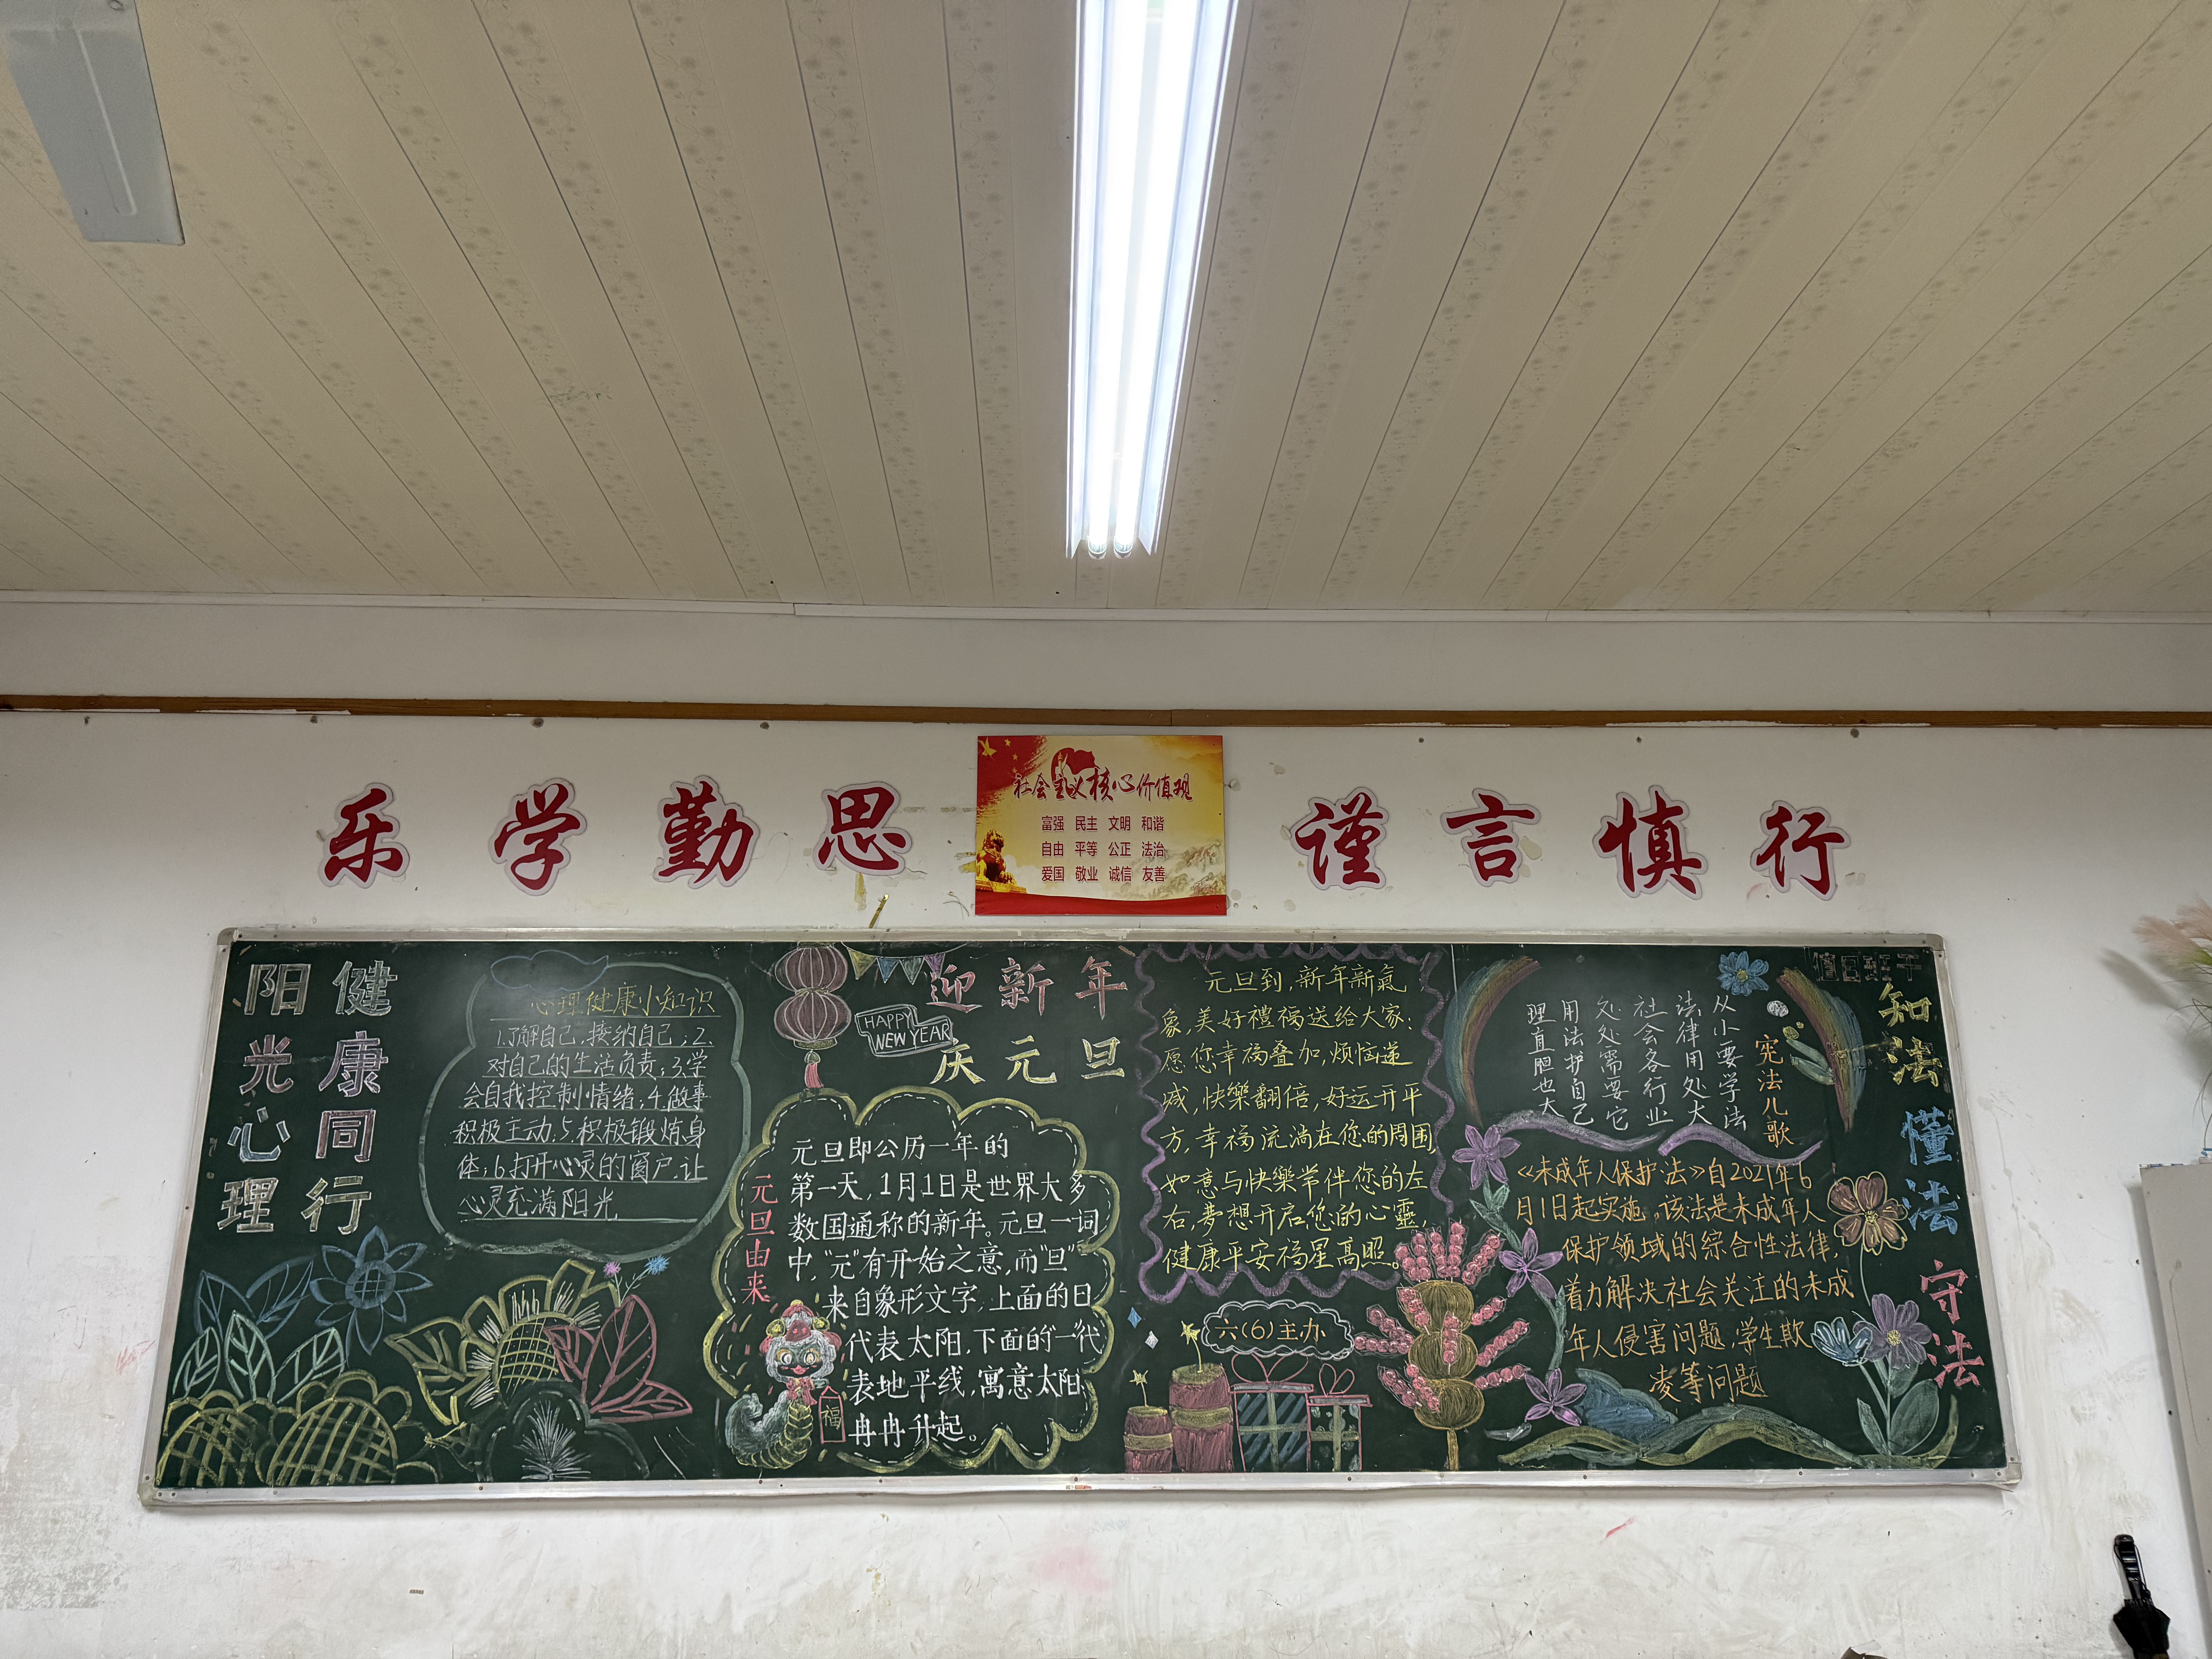 乐学勤思
社会主义核心价值观
富强 民主 文明 和谐
自由 平等 公正 法治
爱国 敬业 诚信 友善
谨言慎行
阳光心理
健康同行
心理健康小知识
1.了解自己,接纳自己;2.
对自己的生活负责;3.学
会自我控制情绪;4.做事
积极主动.5.积极锻炼身
体;6.打开心灵的窗户,让
心灵充满阳光
迎新年
HAPPY
NEW YEAR
庆元旦
元旦由来
元旦即公历一年的
第一天,1月1日是世界大多
数国通称的新年。元旦一词
中,“元”有开始之意,而“旦”
来自象形文字,上面的日
代表太阳,下面的“一”代
表地平线,寓意太阳
冉冉升起。
福
元旦到,新年新氣
象,美好禮福送给大家:
愿您幸福叠加,烦恼递
减,快樂翻倍,好运开平
方,幸福流淌在您的周围,
如意与快樂常伴您的左
右,夢想开启您的心靈,
健康平安福星高照。
六(6)主办
值日班干
宪法儿歌
从小要学法
法律用处大
社会各行业
处处需要它
用法护自己
理直胆也大
知法懂法守法
《未成年人保护法》自2021年6
月1日起实施,该法是未成年人
保护领域的综合性法律,
着力解决社会关注的未成
年人侵害问题,学生欺
凌等问题